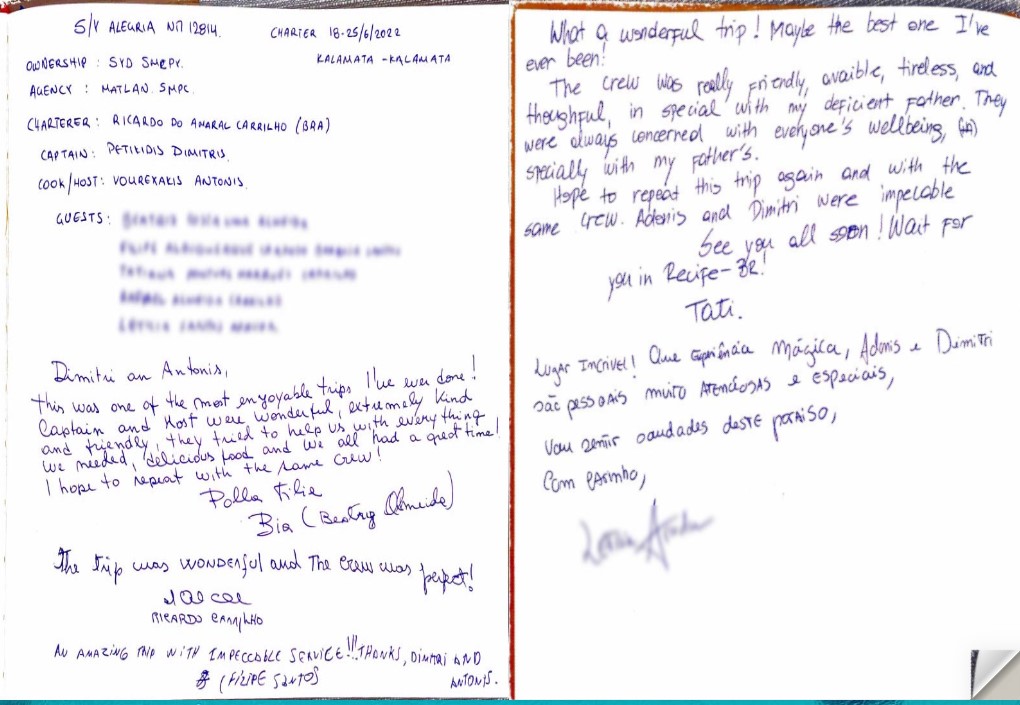 S/Y ALEGRIA NΠ 12814.
CHARTER 18-25/6/2022
KALAMATA - KALAMATA
OWNERSHIP : SYD SMCPY.
AGENCY : MATLAN SMPC.
CHARTERER : RICARDO DO AMARAL CARRILHO (BRA)
CAPTAIN: PETIKIDIS DIMITRIS.
COOK/HOST: VOUREXAKIS ANTONIS.
GUESTS:
Dimitri an Antonis,
This was one of the most enyoyable trips I've ever done!
Captain and Host were wonderful, extremely kind
and friendly, they tried to help us with everything
we needed, delicious food and we all had a great time!
I hope to repeat with the same crew!
Polla Filia
Bia (Beatriz Almeida)
The trip was WONDERful and The crew was perfect!
RICARDO CARRILHO
AN AMAZING TRIP WITH IMPECCABLE SERVICE!!! THANKS, DIMITRI AND
ANTONIS.
(FILIPE SANTOS
What a wonderful trip! Maybe the best one I've
ever been!
The crew was really friendly, avaible, tireless, and
thoughful, in special with my deficient father. They
were always concerned with everyone's wellbeing,
specially with my father's.
Hope to repeat this trip again and with the
same crew. Adonis and Dimitri were impecable
See you all soon! Wait for
you in Recife-BR!
Tati.
LUGAR INCRÍVEL! Que Experiência Mágica, Adonis e Dimitri
são pessoais muito ATENCIOSAS e especiais,
Vou sentir saudades deste paraiso,
Com carinho,